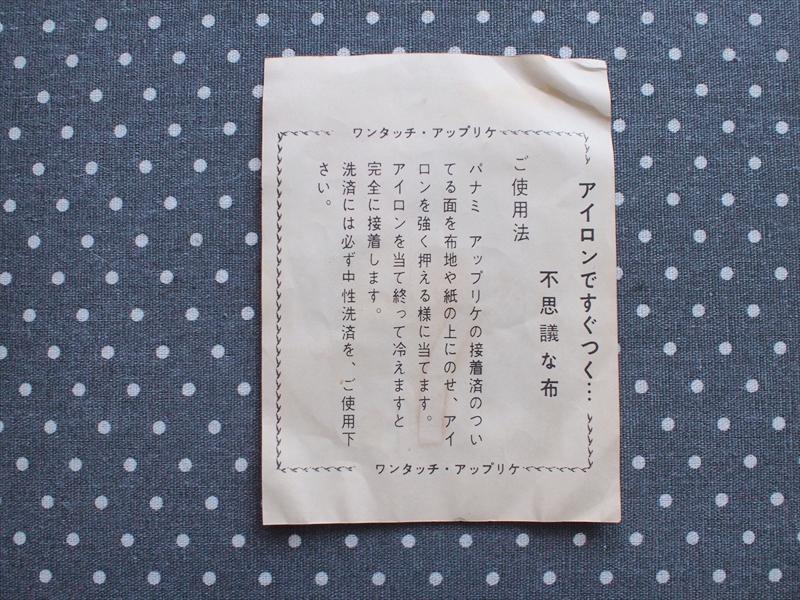 ワンタッチ・アップリケ
アイロンですぐつく…
不思議な布
ご使用法
パナミ　アップリケの接着済のつい
てる面を布地や紙の上にのせ、アイ
ロンを強く押える様に当てます。
アイロンを当て終って冷えますと
完全に接着します。
洗済には必ず中性洗済を、ご使用下
さい。
ワンタッチ・アップリケ